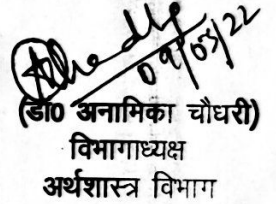 09/03/22
(डॉ0 अनामिका चौधरी)
विभागाध्यक्ष
अर्थशास्त्र विभाग